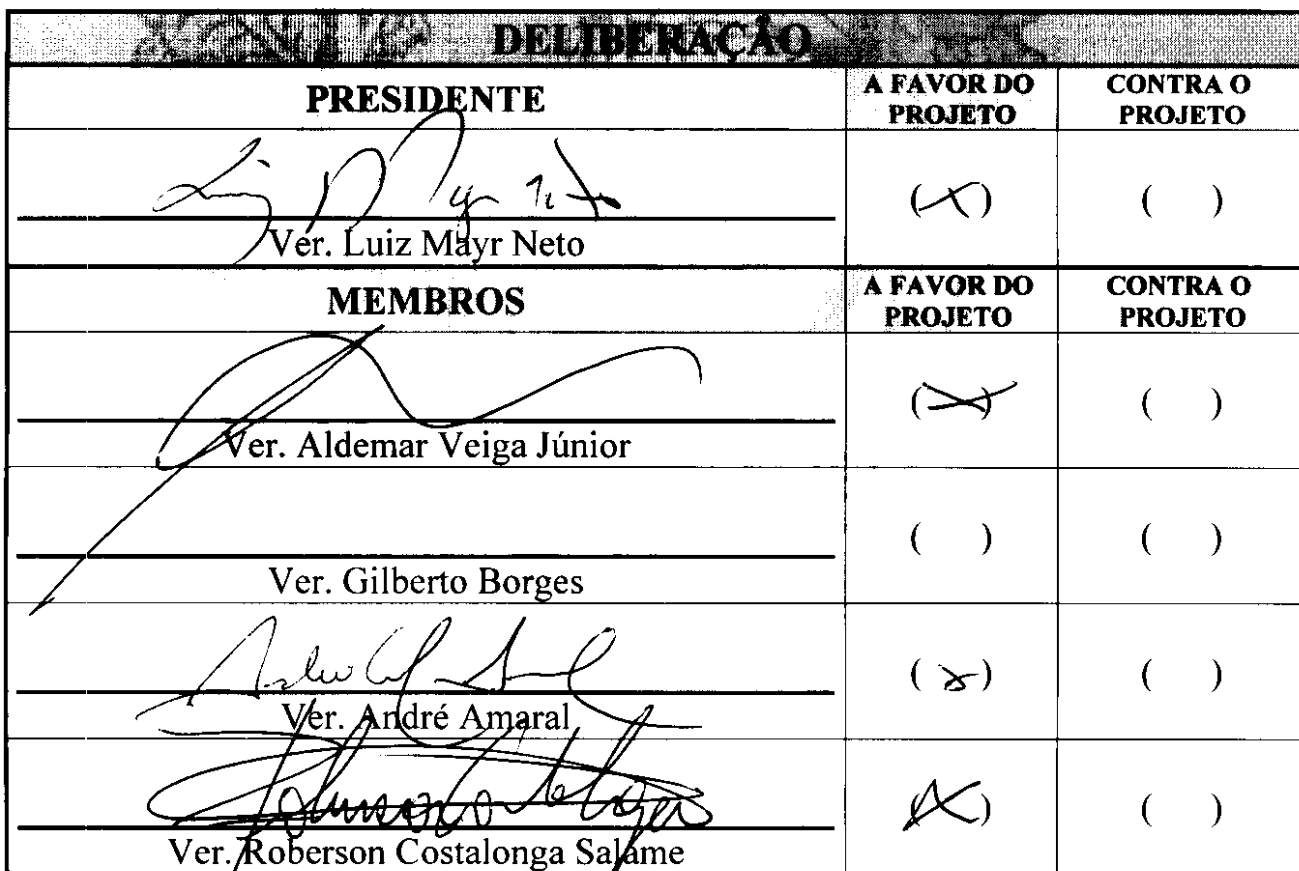 DELIBERAÇÃO
PRESIDENTE A FAVOR DO PROJETO CONTRA O PROJETO
(X) ( )
Ver. Luiz Mayr Neto
MEMBROS A FAVOR DO PROJETO CONTRA O PROJETO
(X) ( )
Ver. Aldemar Veiga Júnior
( ) ( )
Ver. Gilberto Borges
(X) ( )
Ver. André Amaral
(X) ( )
Ver. Roberson Costalonga Salame